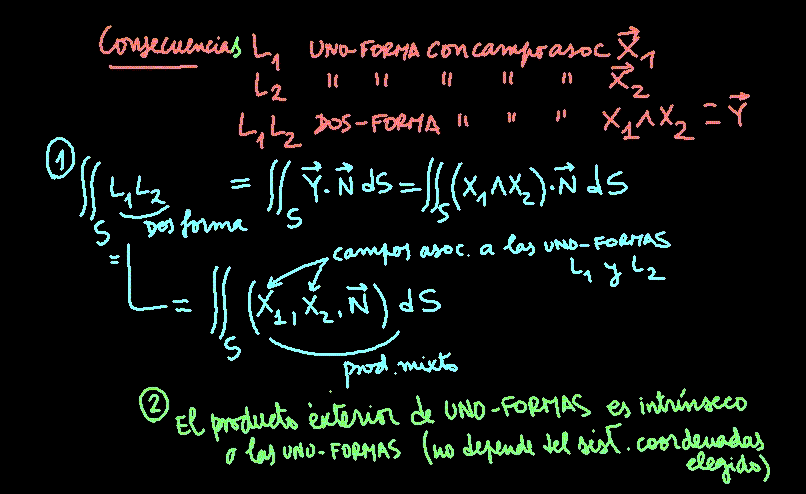 Consecuencias L₁ UNO-FORMA con campo asoc X⃗₁
L₂ " " " " " X⃗₂
L₁L₂ DOS-FORMA " " " X₁∧X₂ = Y⃗
① ∬_S L₁L₂ = ∬_S Y⃗·N⃗ dS = ∬_S (X₁∧X₂)·N⃗ dS
Dos forma
= campos asoc. a las UNO-FORMAS
L₁ y L₂
= ∬_S (X₁, X₂, N⃗) dS
prod. mixto
② El producto exterior de UNO-FORMAS es intrínseco
a las UNO-FORMAS (no depende del sist. coordenadas
elegido)